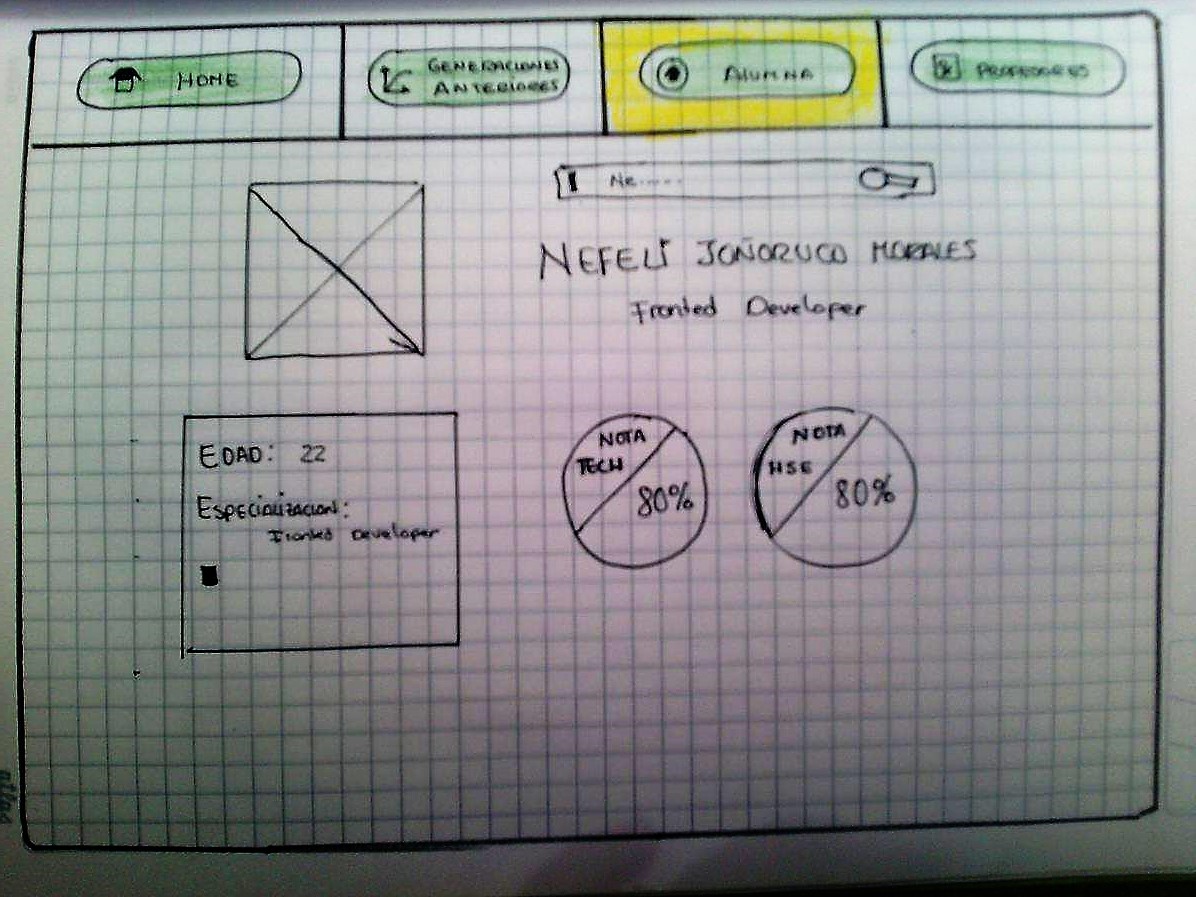 HOME
GENERACIONES
ANTERIORES
ALUMNA
PROFESORES
Ne......
NEFELI JOÑORUCO MORALES
Fronted Developer
EDAD: 22
ESPECIALIZACION:
Fronted Developer
NOTA
TECH
80%
NOTA
HSE
80%